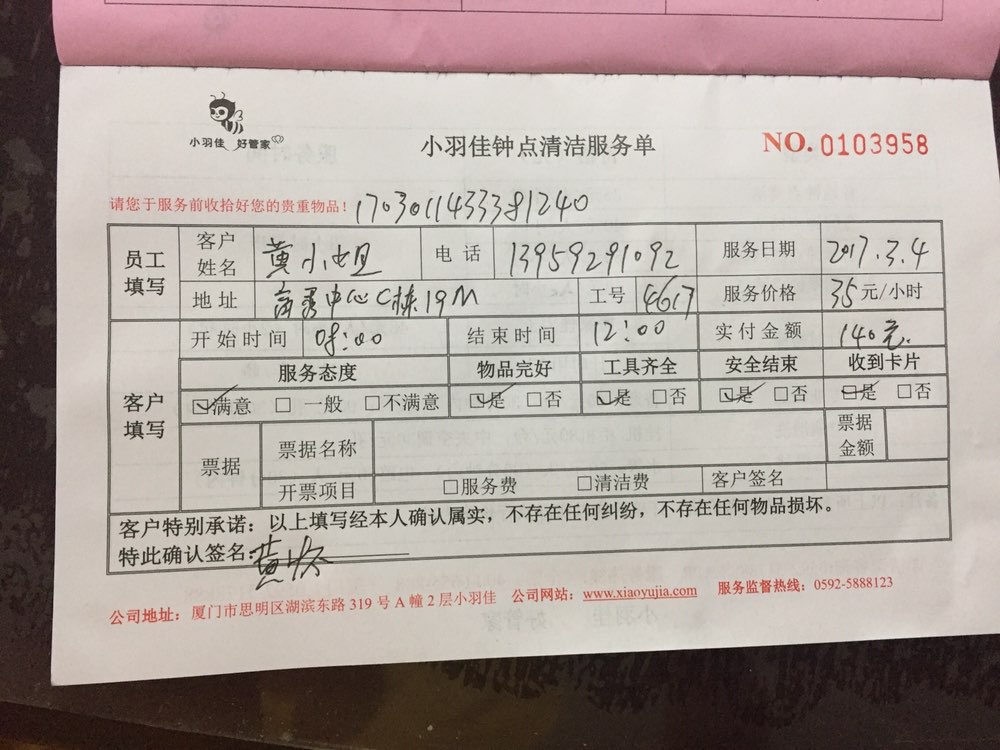 小羽佳 好管家
小羽佳钟点清洁服务单
NO. 0103958
请您于服务前收拾好您的贵重物品! 1703011433381240
员工填写 客户姓名 黄小姐 电话 13959291092 服务日期 2017.3.4
地址 中心C栋19M 工号 4617 服务价格 35元/小时
客户填写 开始时间 08:00 结束时间 12:00 实付金额 140元
服务态度 物品完好 工具齐全 安全结束 收到卡片
☑满意 □一般 □不满意 ☑是 □否 ☑是 □否 ☑是 □否 ☑是 □否
票据 票据名称 票据金额
开票项目 □服务费 □清洁费 客户签名
客户特别承诺:以上填写经本人确认属实,不存在任何纠纷,不存在任何物品损坏。
特此确认签名:黄
公司地址:厦门市思明区湖滨东路 319 号 A 幢 2 层小羽佳 公司网站:www.xiaoyujia.com 服务监督热线:0592-5888123